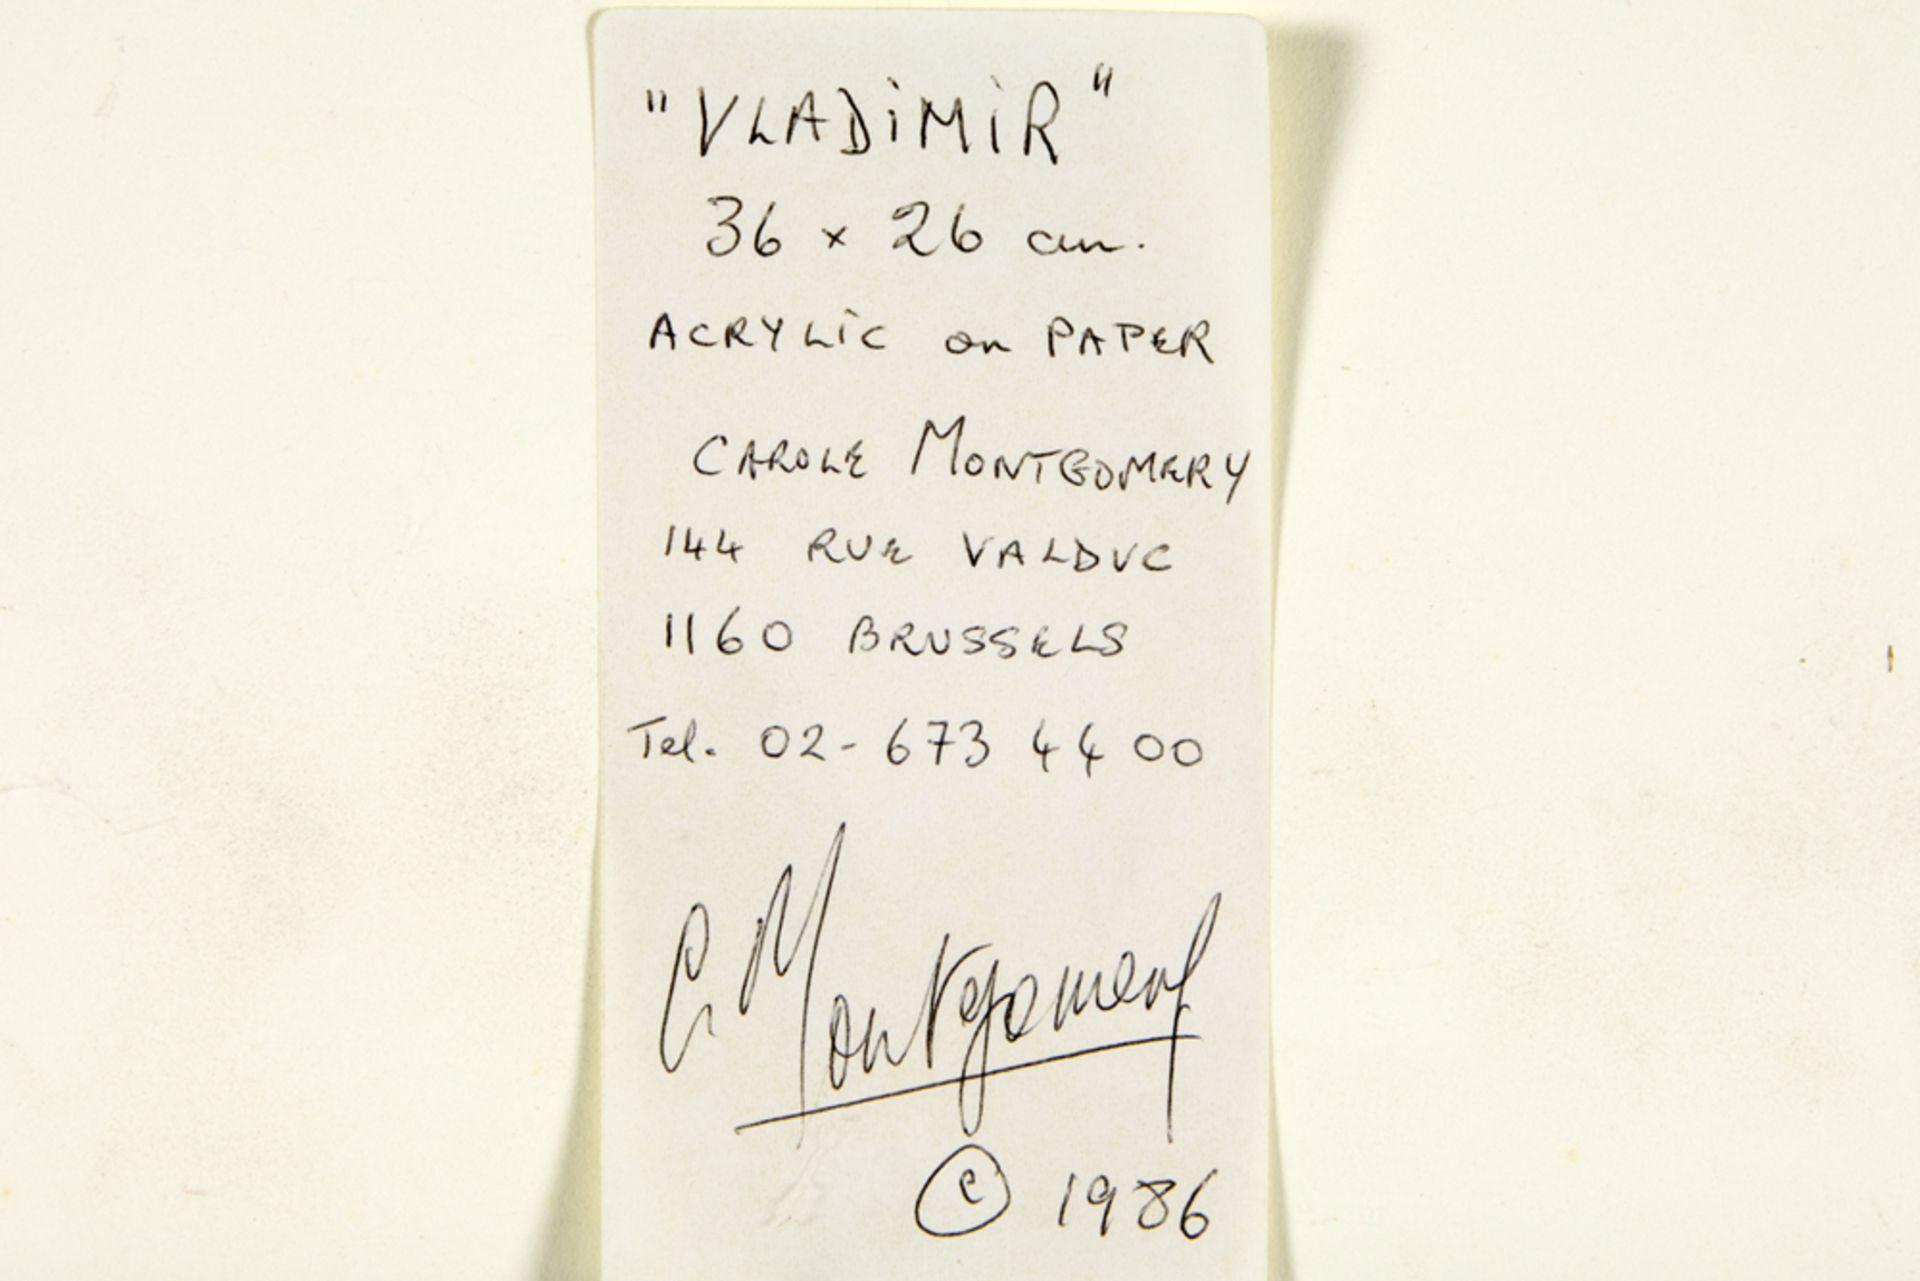 "VLADiMiR"
36 x 26 cm.
ACRYLiC on PAPER
CAROLE MONTGOMERY
144 RUE VALDUC
1160 BRUSSELS
Tel. 02-673 44 00
C Montgomery
© 1986